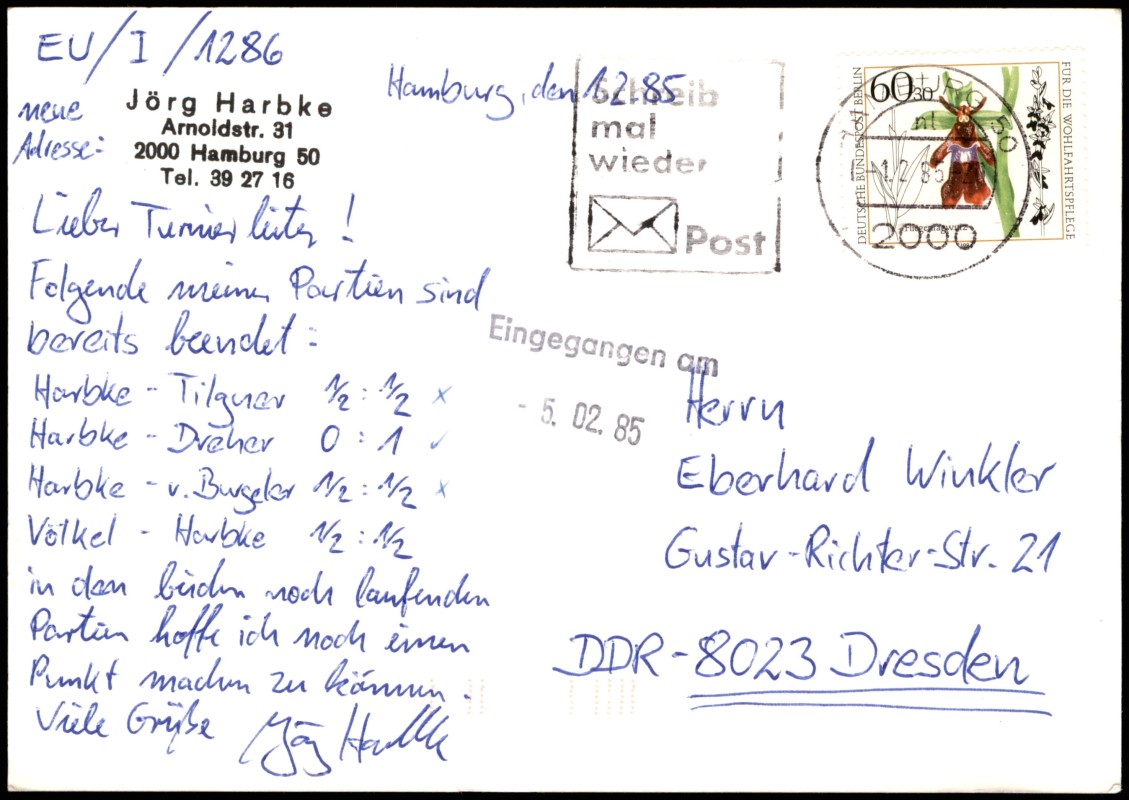 EU/I/1286
neue
Adresse:
Jörg Harbke
Arnoldstr. 31
2000 Hamburg 50
Tel. 39 27 16
Hamburg, den 1.2.85
Schreib
mal
wieder
Post
60+30
DEUTSCHE BUNDESPOST BERLIN
FÜR DIE WOHLFAHRTSPFLEGE
Fliegenragwurz
HAMBURG 50
-1.2.85
2000
Lieber Turnierleiter!
Folgende meiner Partien sind
bereits beendet:
Harbke - Tilgner 1/2 : 1/2 x
Harbke - Dreher 0 : 1 ✓
Harbke - v. Burgeler 1/2 : 1/2 x
Völkel - Harbke 1/2 : 1/2
in den beiden noch laufenden
Partien hoffe ich noch einen
Punkt machen zu können.
Viele Grüße Jörg Harbke
Eingegangen am
- 5. 02. 85
Herrn
Eberhard Winkler
Gustav-Richter-Str. 21
DDR-8023 Dresden